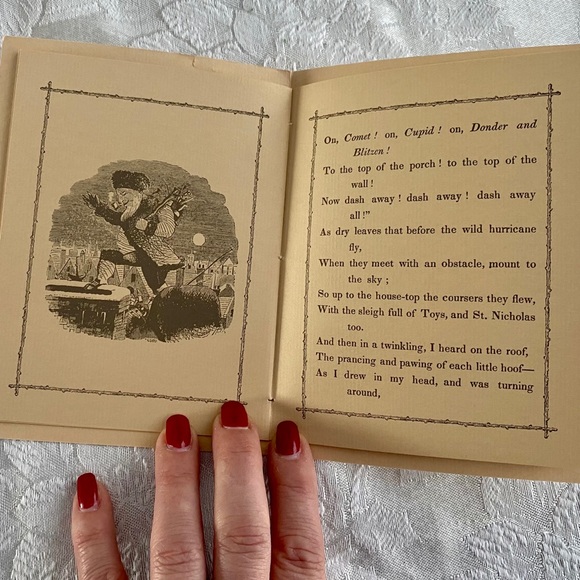 On, Comet ! on, Cupid ! on, Donder and
Blitzen !
To the top of the porch ! to the top of the
wall !
Now dash away ! dash away ! dash away
all !"
As dry leaves that before the wild hurricane
fly,
When they meet with an obstacle, mount to
the sky ;
So up to the house-top the coursers they flew,
With the sleigh full of Toys, and St. Nicholas
too.
And then in a twinkling, I heard on the roof,
The prancing and pawing of each little hoof—
As I drew in my head, and was turning
around,